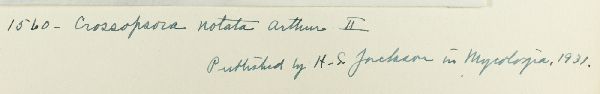 1560- Crossopsora notata Arthur II
Published by H-S Jackson in Mycologia, 1931.